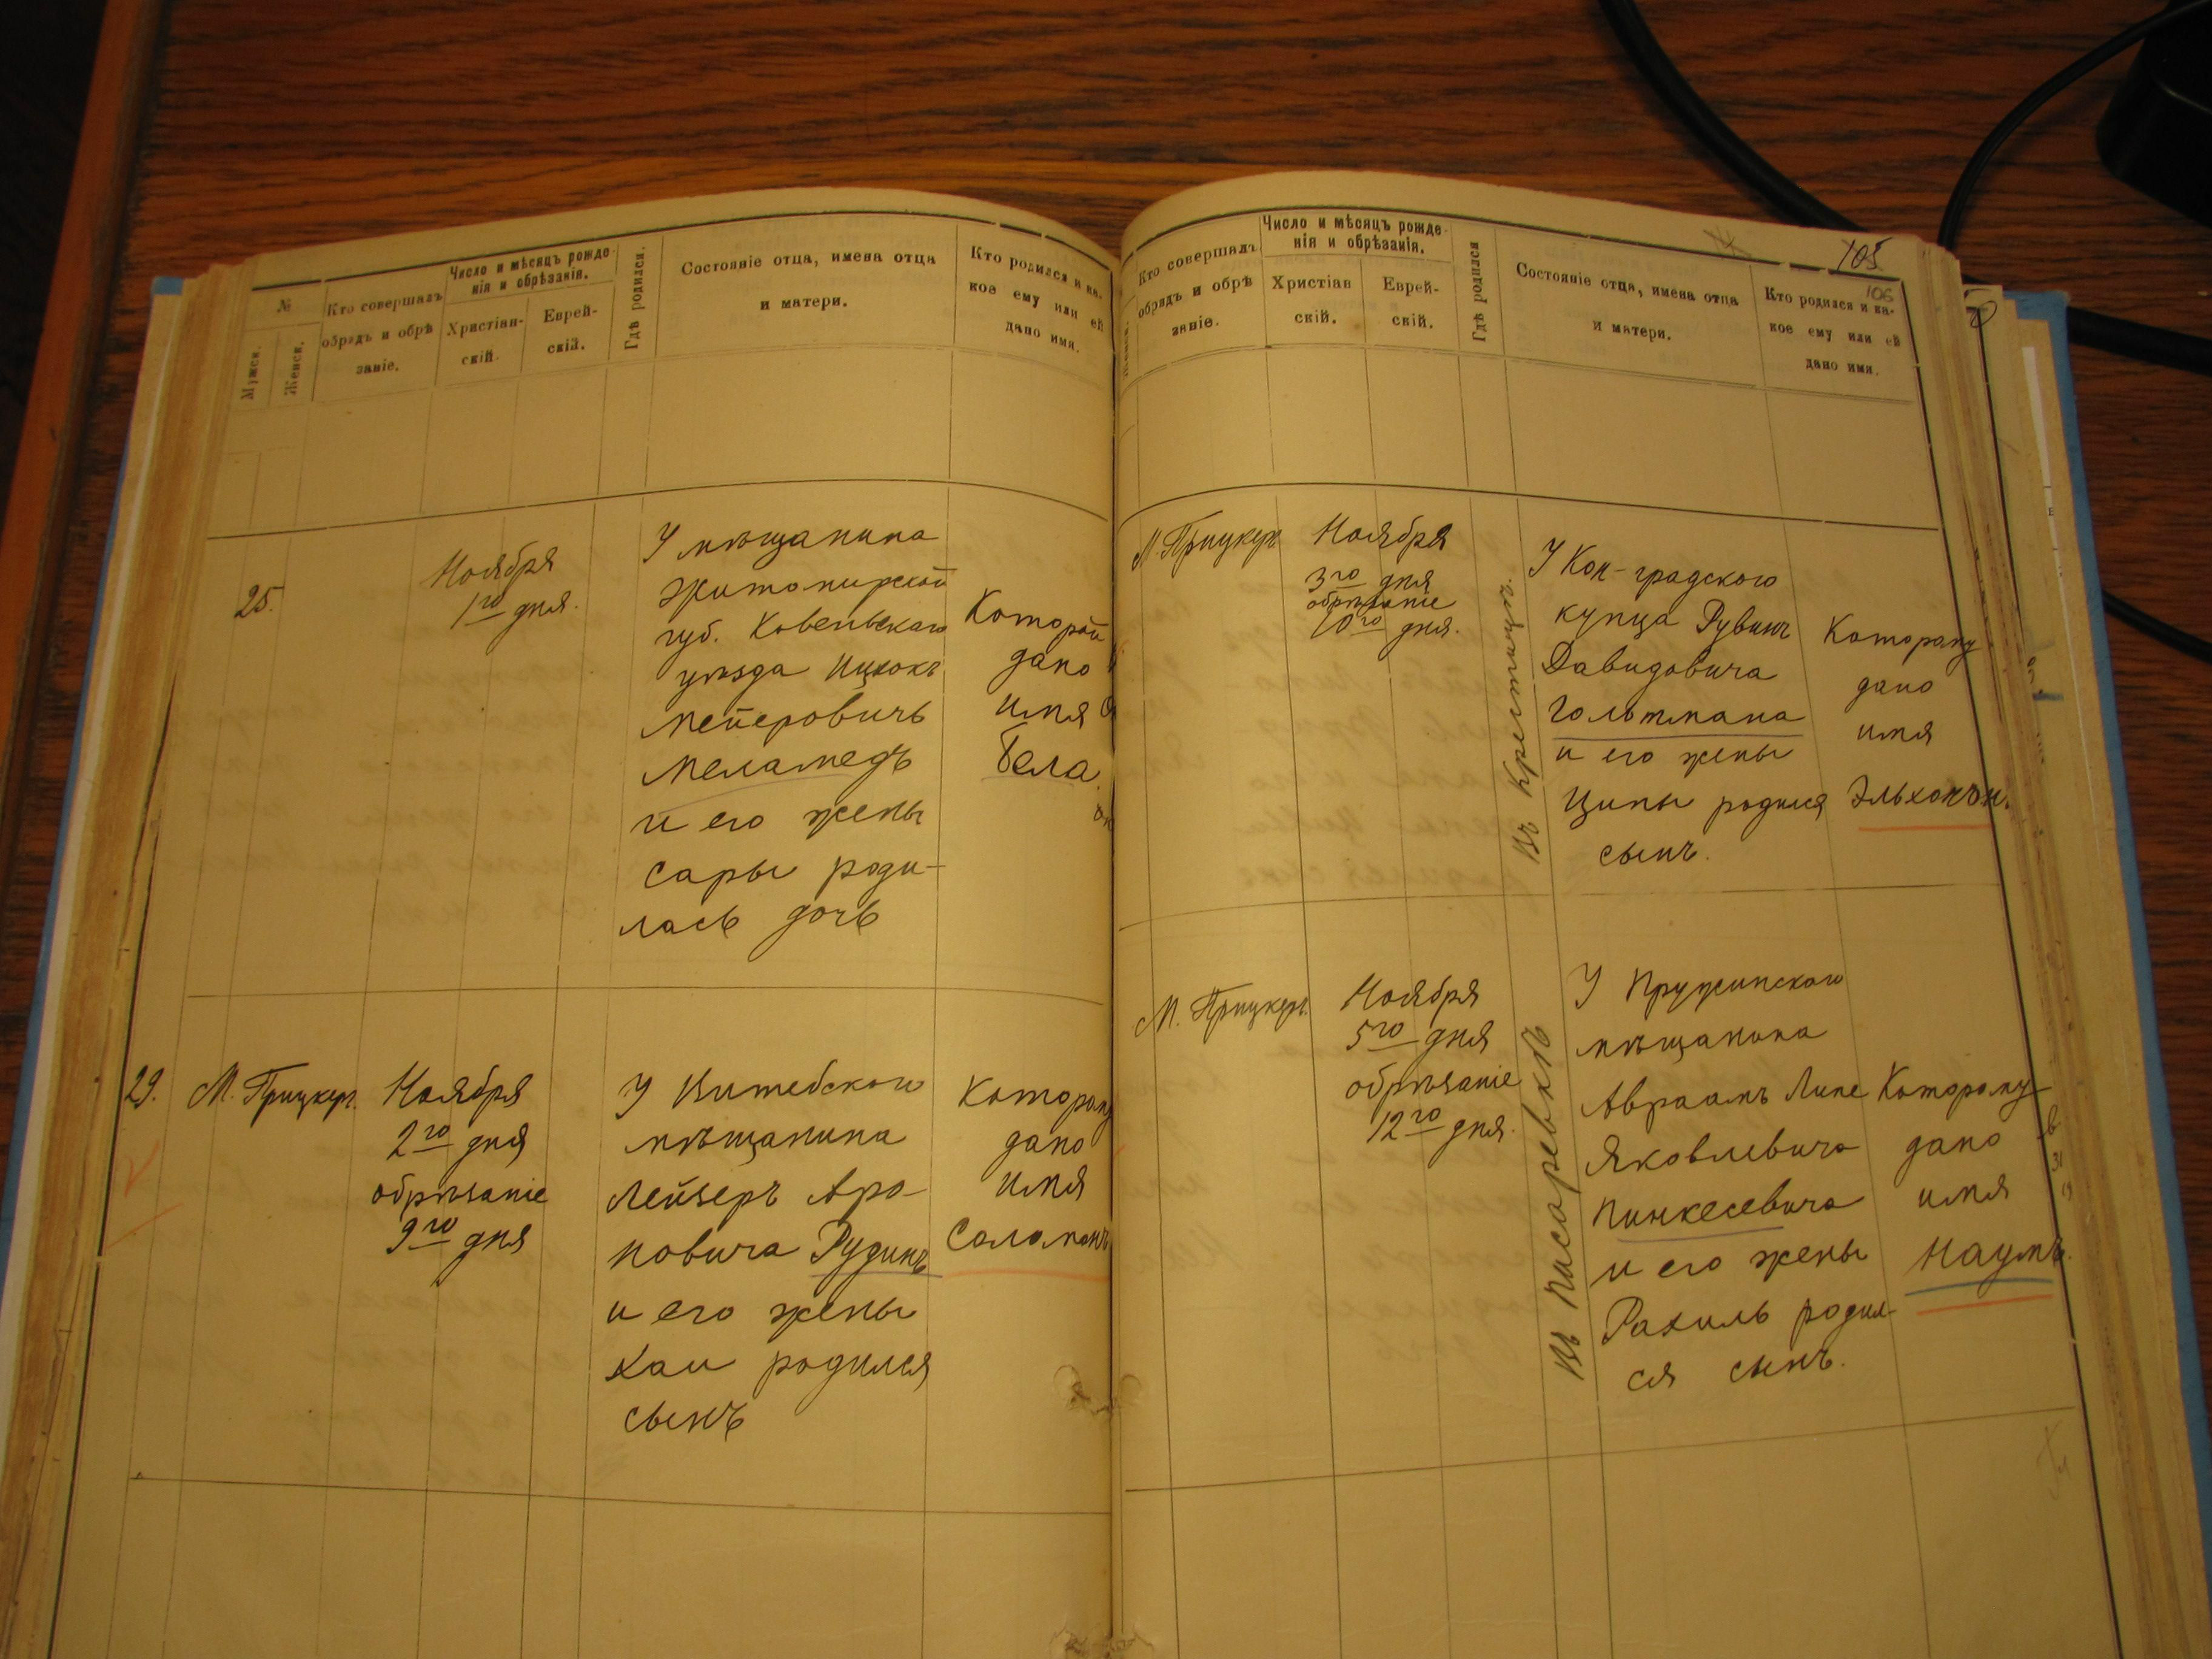 №
Мужск.
Женск.
Кто совершалъ
обрядъ и обрѣ
заніе.
Число и мѣсяцъ рожде-
нія и обрѣзанія.
Христіан-
скій.
Еврей-
скій.
Гдѣ родился.
Состояніе отца, имена отца
и матери.
Кто родился и ка-
кое ему или ей
дано имя.
25.
Ноября
1го дня.
У мѣщанина
Житомирской
губ. Ковельскаго
уѣзда Ицхокъ
Мейеровичъ
Меламедъ
и его жены
Сары роди-
лась дочь
Которой
дано
имя
Бела
29.
М. Прицкеръ.
Ноября
2го дня
обрѣзаніе
9го дня
У Витебскаго
мѣщанина
Лейзеръ Аро-
новича Рудинъ
и его жены
Хаи родился
сынъ
Котораму
дано
имя
Саламонъ
105
106
Кто совершалъ
обрядъ и обрѣ
заніе.
Число и мѣсяцъ рожде-
нія и обрѣзанія.
Христіан
скій.
Еврей-
скій.
Гдѣ родился
Состояніе отца, имена отца
и матери.
Кто родился и ка-
кое ему или ей
дано имя.
М. Прицкеръ
Ноября
3го дня
обрѣзаніе
10го дня.
Въ Крестищѣ.
У Кон-градского
купца Рувинъ
Давидовича
Гольтмана
и его жены
Ципы родился
сынъ.
Котораму
дано
имя
Эльхонон.
М. Прицкеръ.
Ноября
5го дня
обрѣзаніе
12го дня.
Въ Писаревкѣ
У Пружинскаго
мѣщанина
Авраамъ Липе
Яковлевича
Пинкесевича
и его жены
Рахиль родил-
ся сынъ.
Котораму
дано
имя
Наумъ.